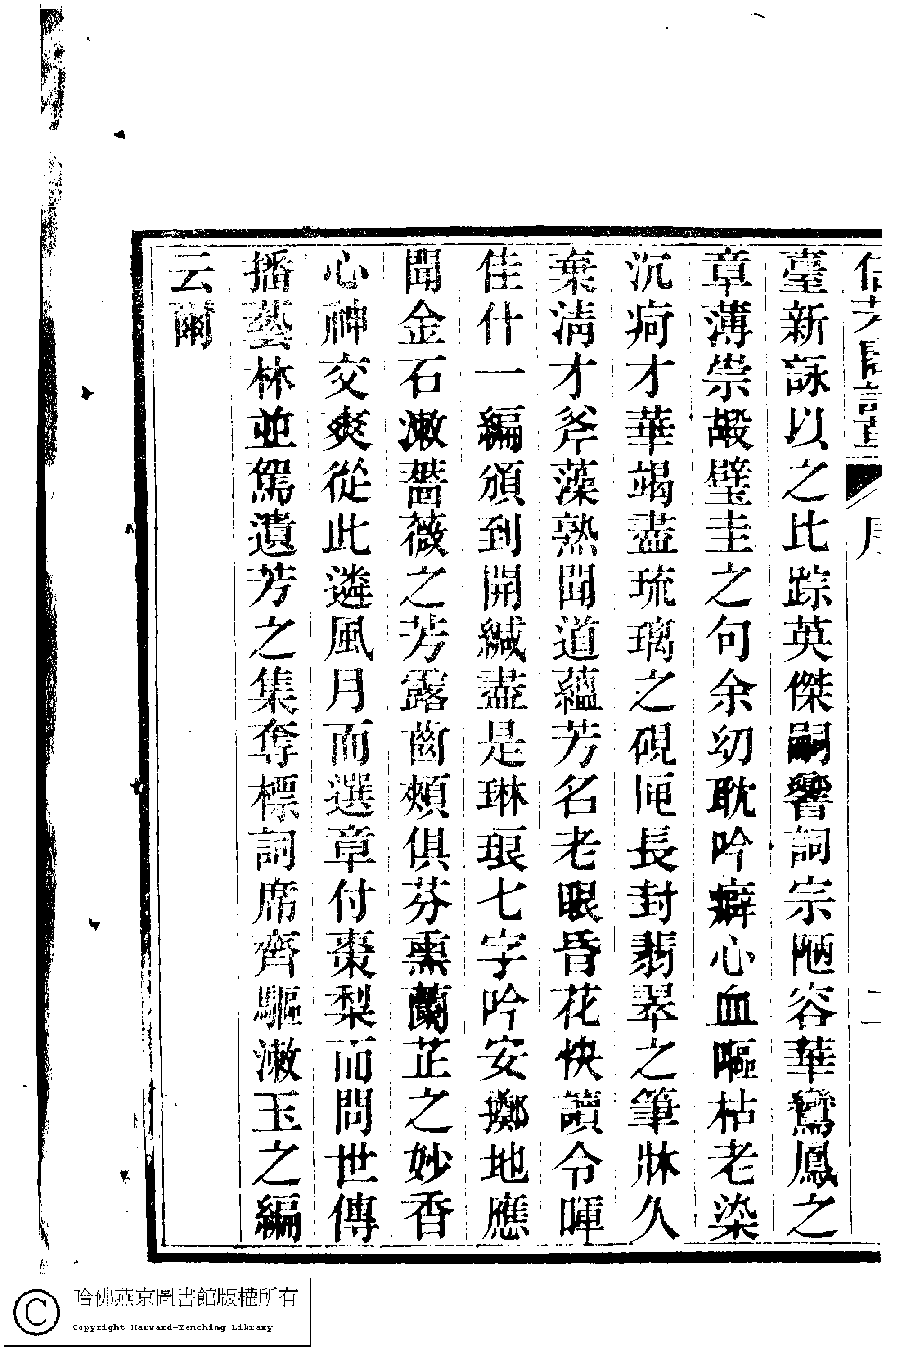 信芳閣詩草 序 二
臺新詠以之比踪英傑嗣響詞宗陋容華鸞鳳之
章薄崇嘏璧圭之句余幼耽吟癖心血嘔枯老染
沉疴才華竭盡琉璃之硯匣長封翡翠之筆牀久
棄淸才斧藻熟聞道蘊芳名老眼昏花快讀令暉
佳什一編頒到開緘盡是琳琅七字吟安擲地應
聞金石漱薔薇之芳露齒頰俱芬熏蘭芷之妙香
心神交爽從此遴風月而選章付棗梨而問世傳
播藝林並駕遺芳之集奪標詞席齊驅漱玉之編
云爾
哈佛燕京圖書館版權所有
Copyright Harvard-Yenching Library